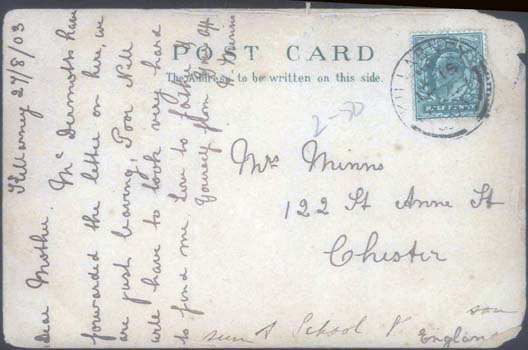 POST CARD
The Address to be written on this side.
Killarney 27/8/03
Dear Mother. Mc Dermotts have
forwarded the letter on here, we
are just leaving, Poor Nell
will have to look very hard
to find me. Love to father &
Yourself from
KILLARNEY
2-50
Mrs Minns
122 St Anne St
Chester
England
School
son